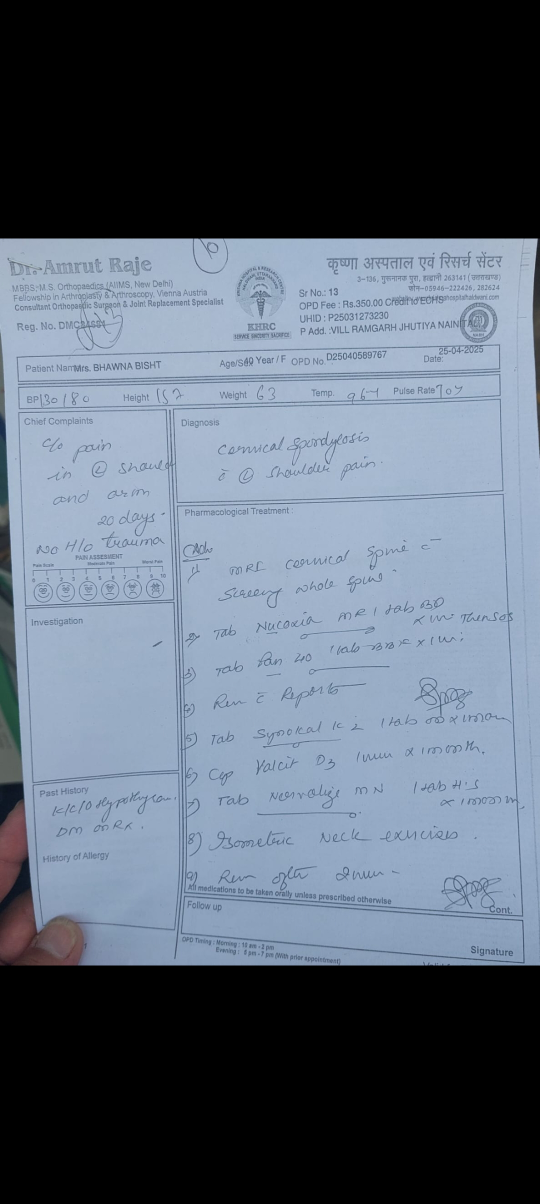 Dr. Amrut Raje
MBBS; M.S. Orthopaedics (AIIMS, New Delhi)
Fellowship in Arthroplasty & Arthroscopy, Vienna Austria
Consultant Orthopaedic Surgeon & Joint Replacement Specialist
Reg. No. DMC
KHRC
SERVICE SINCERITY SACRIFICE
कृष्णा अस्पताल एवं रिसर्च सेंटर
3-136, गुरुनानक पुरा, हल्द्वानी 263141 (उत्तराखण्ड)
फोन-05946-222426, 282624
Sr No.: 13
OPD Fee : Rs.350.00 Credit to ECHS
UHID : P25031273230
P Add. :VILL RAMGARH JHUTIYA NAINITAL
Patient Name Mrs. BHAWNA BISHT Age/Sex 40 Year / F OPD No. D25040589767 Date: 25-04-2025
BP 130/80 Height 152 Weight 63 Temp. 96.4 Pulse Rate 70
Chief Complaints
c/o pain
in Ⓛ should
and arm
20 days.
No H/o trauma
PAIN ASSESSMENT
Pain Score Moderate Pain Worst Pain
0 1 2 3 4 5 6 7 8 9 10
Investigation
Past History
K/C/O Hypothy
DM on Rx.
History of Allergy
Diagnosis
Cervical Spondylosis
c̄ Ⓛ Shoulder pain.
Pharmacological Treatment :
Adv
1) MRI cervical Spine c̄
Screening whole spine.
2) Tab Nucoxia MR 1 tab BD
x 1w then SOS
3) Tab Pan 40 1 tab x 1w
4) Rev c̄ Reports
5) Tab K2 1 tab OD x 1 month
6) Cap Valcit D3 x 1 month.
7) Tab MN 1 tab H.S
x 1 month
8) Isometric Neck exercises.
9) Rev after
All medications to be taken orally unless prescribed otherwise
Cont.
Follow up
Signature
OPD Timing : Morning : 10 am - 3 pm
Evening : 5 pm - 7 pm (With prior appointment)